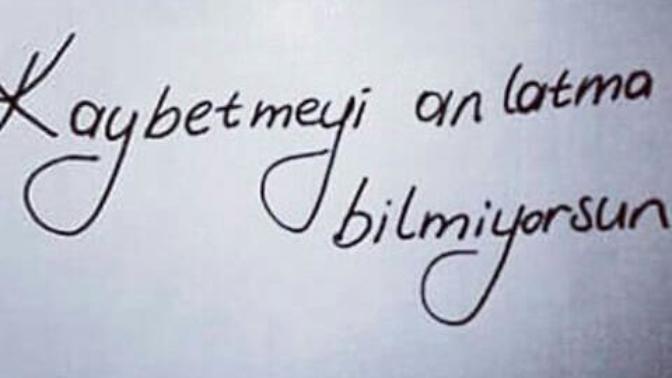 Kaybetmeyi anlatma
bilmiyorsun